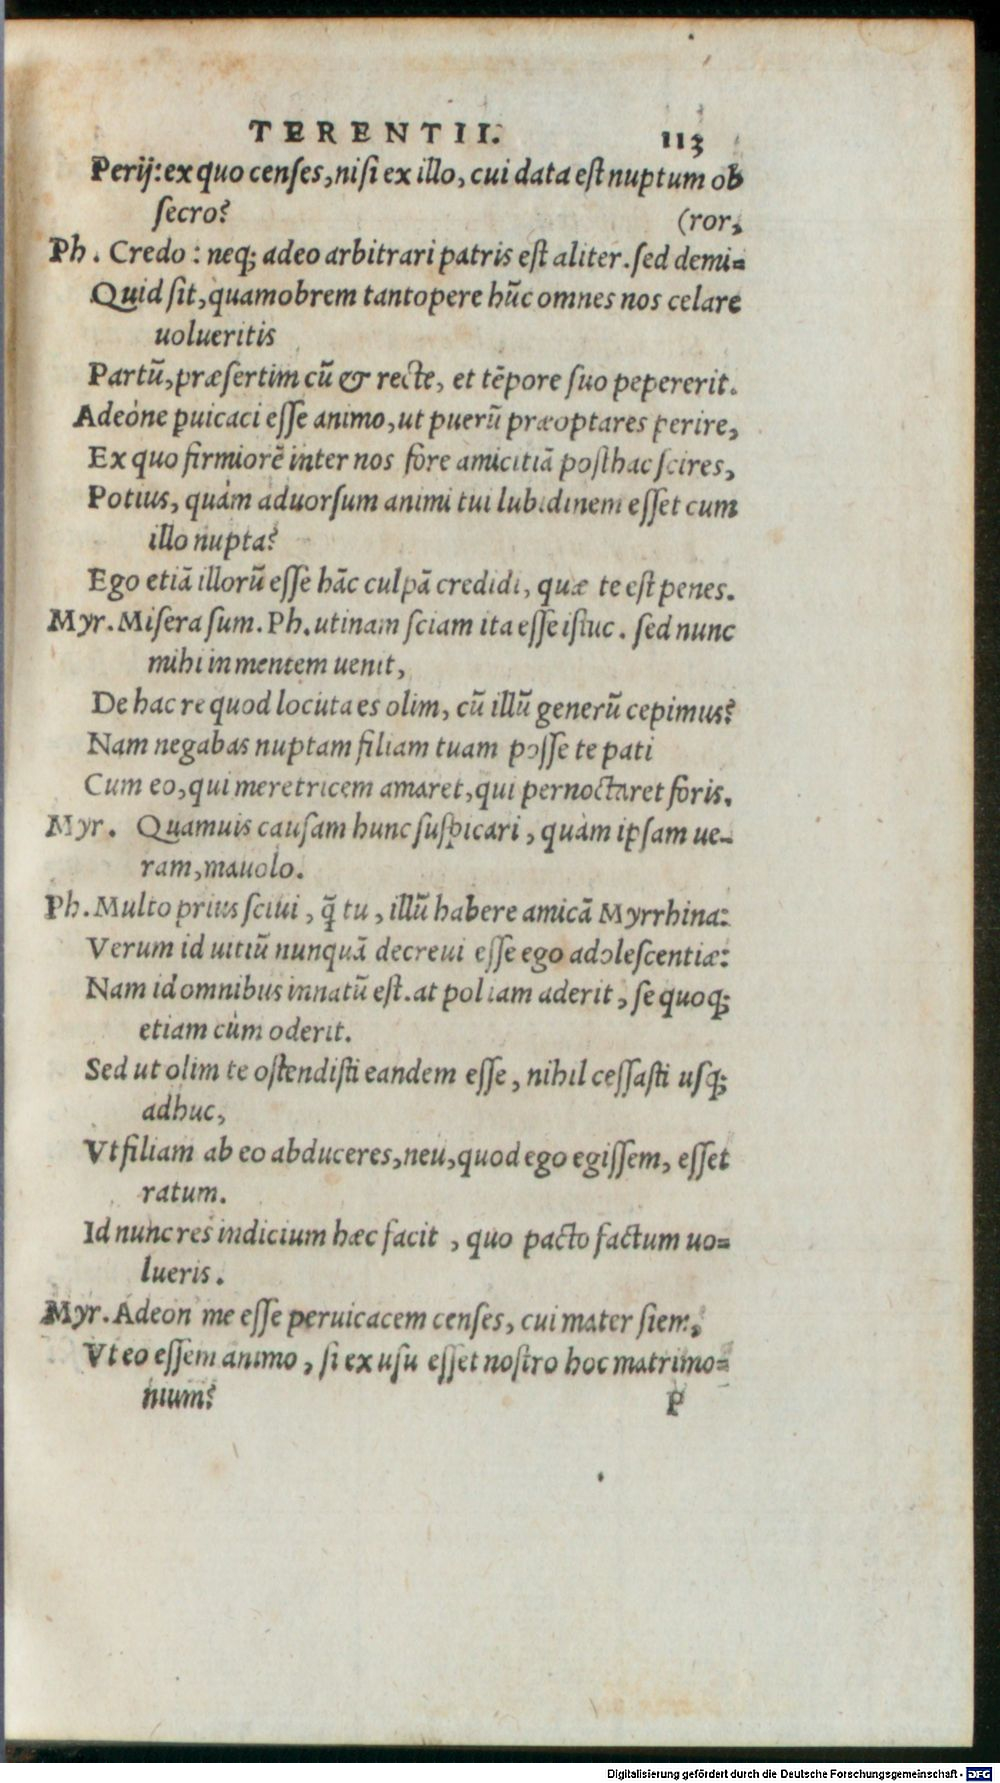 TERENTII. 113
Perij: ex quo censes, nisi ex illo, cui data est nuptum ob
secro? (ror,
Ph. Credo: neq; adeo arbitrari patris est aliter. sed demi=
Quid sit, quamobrem tantopere hūc omnes nos celare
uolueritis
Partū, præsertim cū & recte, et tēpore suo pepererit.
Adeóne puicaci esse animo, ut puerū præoptares perire,
Ex quo firmiorē inter nos fore amicitiā posthac scires,
Potius, quàm aduorsum animi tui lubidinem esset cum
illo nupta?
Ego etiā illorū esse hāc culpā credidi, quæ te est penes.
Myr. Misera sum. Ph. utinam sciam ita esse istuc. sed nunc
mihi in mentem uenit,
De hac re quod locuta es olim, cū illū generū cepimus?
Nam negabas nuptam filiam tuam posse te pati
Cum eo, qui meretricem amaret, qui pernoctaret foris.
Myr. Quamuis causam hunc suspicari, quàm ipsam ue-
ram, mauolo.
Ph. Multo prius sciui, q̄ tu, illū habere amicā Myrrhina:
Verum id uitiū nunquā decreui esse ego adolescentiæ:
Nam id omnibus innatū est. at pol iam aderit, se quoq;
etiam cùm oderit.
Sed ut olim te ostendisti eandem esse, nihil cessasti usq;
adhuc,
Vt filiam ab eo abduceres, neu, quod ego egissem, esset
ratum.
Id nunc res indicium hæc facit, quo pacto factum uo=
lueris.
Myr. Adeon me esse peruicacem censes, cui mater siem,
Vt eo essem animo, si ex usu esset nostro hoc matrimo=
nium? P
Digitalisierung gefördert durch die Deutsche Forschungsgemeinschaft - DFG